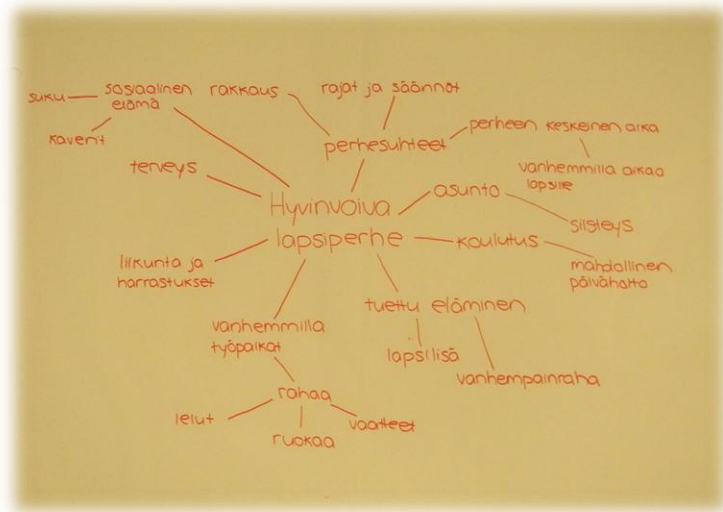 suku
sosiaalinen
elämä
kaverit
rakkaus
rajat ja säännöt
perhesuhteet
perheen keskeinen aika
vanhemmilla aikaa
lapsille
terveys
Hyvinvoiva
lapsiperhe
asunto
siisteys
koulutus
mahdollinen
päivähoito
liikunta ja
harrastukset
tuettu eläminen
lapsilisä
vanhempainraha
vanhemmilla
työpaikat
rahaa
lelut
ruokaa
vaatteet